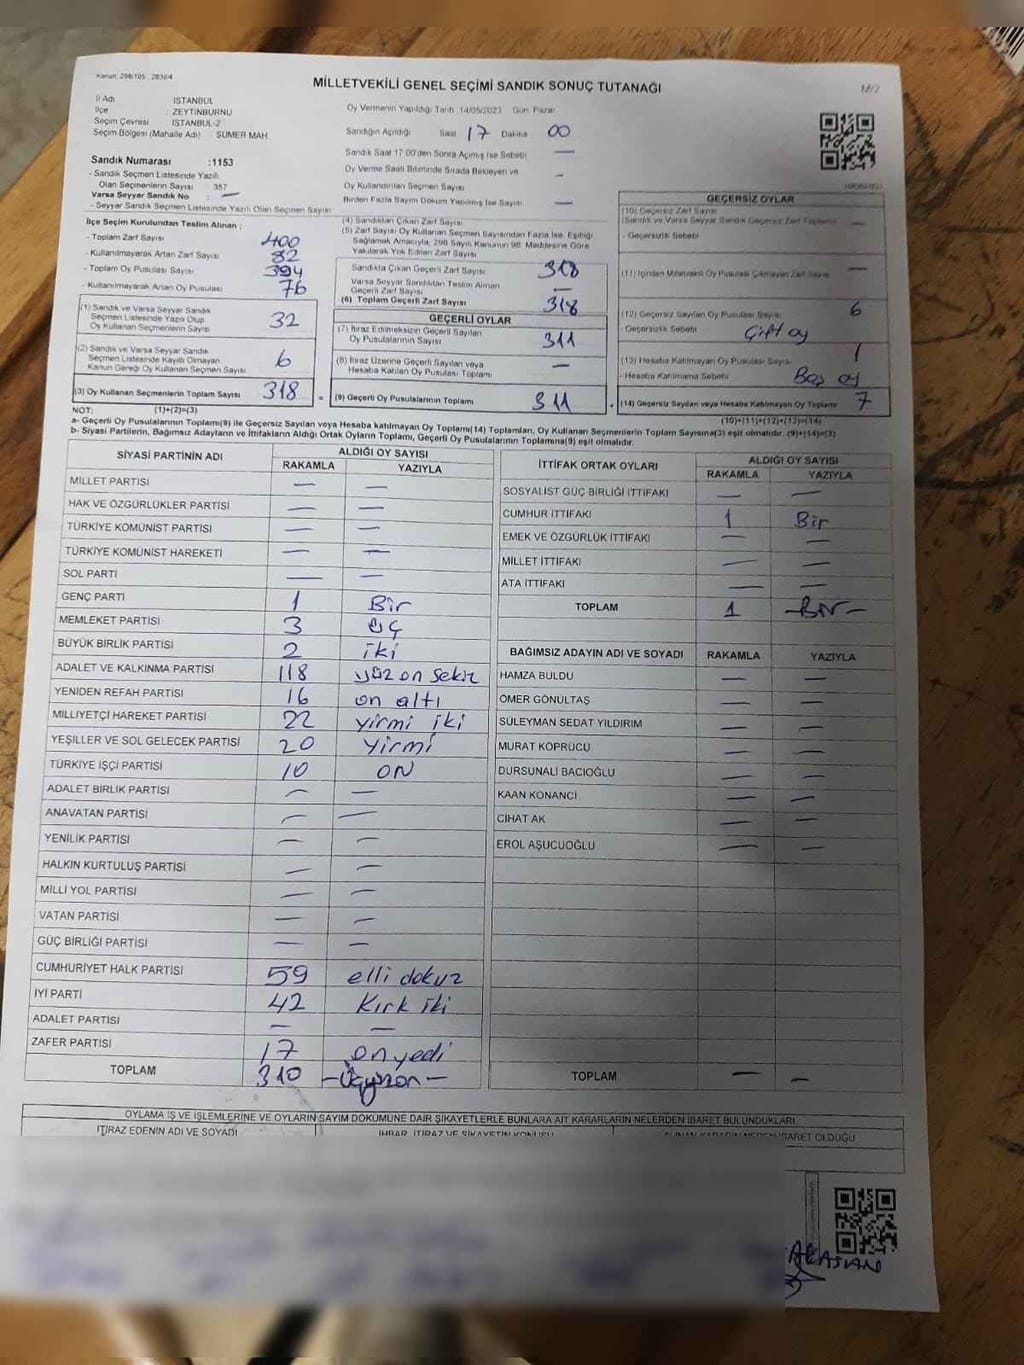 Kanun: 298/105 , 2839/4
MİLLETVEKİLİ GENEL SEÇİMİ SANDIK SONUÇ TUTANAĞI
M/2
İl Adı : İSTANBUL
İlçe : ZEYTİNBURNU
Seçim Çevresi : İSTANBUL-2
Seçim Bölgesi (Mahalle Adı) : SÜMER MAH.
Sandık Numarası :1153
- Sandık Seçmen Listesinde Yazılı
Olan Seçmenlerin Sayısı : 357
Varsa Seyyar Sandık No : —
- Seyyar Sandık Seçmen Listesinde Yazılı Olan Seçmen Sayısı
Oy Vermenin Yapıldığı Tarih :14/05/2023 Gün: Pazar
Sandığın Açıldığı Saat 17 Dakika 00
Sandık Saat 17:00'den Sonra Açılmış İse Sebebi —
Oy Verme Saati Bitiminde Sırada Bekleyen ve —
Oy Kullandırılan Seçmen Sayısı
Birden Fazla Sayım Döküm Yapılmış İse Sayısı —
İlçe Seçim Kurulundan Teslim Alınan :
- Toplam Zarf Sayısı 400
- Kullanılmayarak Artan Zarf Sayısı 82
- Toplam Oy Pusulası Sayısı 394
- Kullanılmayarak Artan Oy Pusulası 76
(1) Sandık ve Varsa Seyyar Sandık
Seçmen Listesinde Yazılı Olup
Oy Kullanan Seçmenlerin Sayısı 32
(2) Sandık ve Varsa Seyyar Sandık
Seçmen Listesinde Kayıtlı Olmayan
Kanun Gereği Oy Kullanan Seçmen Sayısı 6
(3) Oy Kullanan Seçmenlerin Toplam Sayısı 318
(4) Sandıktan Çıkan Zarf Sayısı
(5) Zarf Sayısı Oy Kullanan Seçmen Sayısından Fazla İse, Eşitliği
Sağlamak Amacıyla, 298 Sayılı Kanunun 98. Maddesine Göre
Yakılarak Yok Edilen Zarf Sayısı
Sandıkta Çıkan Geçerli Zarf Sayısı 318
Varsa Seyyar Sandıktan Teslim Alınan
Geçerli Zarf Sayısı —
(6) Toplam Geçerli Zarf Sayısı 318
GEÇERLİ OYLAR
(7) İtiraz Edilmeksizin Geçerli Sayılan
Oy Pusulalarının Sayısı 311
(8) İtiraz Üzerine Geçerli Sayılan veya
Hesaba Katılan Oy Pusulası Toplamı —
= (9) Geçerli Oy Pusulalarının Toplamı 311 +
GEÇERSİZ OYLAR
(10) Geçersiz Zarf Sayısı
(Sandık ve Varsa Seyyar Sandık Geçersiz Zarf Toplamı) —
- Geçersizlik Sebebi
(11) İçinden Milletvekili Oy Pusulası Çıkmayan Zarf Sayısı —
(12) Geçersiz Sayılan Oy Pusulası Sayısı 6
- Geçersizlik Sebebi Çift oy
(13) Hesaba Katılmayan Oy Pusulası Sayısı 1
- Hesaba Katılmama Sebebi Boş oy
(14) Geçersiz Sayılan veya Hesaba Katılmayan Oy Toplamı 7
NOT: (1)+(2)=(3) (10)+(11)+(12)+(13)=(14)
a- Geçerli Oy Pusulalarının Toplamı(9) ile Geçersiz Sayılan veya Hesaba katılmayan Oy Toplamı(14) Toplamları, Oy Kullanan Seçmenlerin Toplam Sayısına(3) eşit olmalıdır. (9)+(14)=(3)
b- Siyasi Partilerin, Bağımsız Adayların ve İttifakların Aldığı Ortak Oyların Toplamı, Geçerli Oy Pusulalarının Toplamına(9) eşit olmalıdır.
SİYASİ PARTİNİN ADI ALDIĞI OY SAYISI
RAKAMLA YAZIYLA
MİLLET PARTİSİ — —
HAK VE ÖZGÜRLÜKLER PARTİSİ — —
TÜRKİYE KOMÜNİST PARTİSİ — —
TÜRKİYE KOMÜNİST HAREKETİ — —
SOL PARTİ — —
GENÇ PARTİ 1 Bir
MEMLEKET PARTİSİ 3 üç
BÜYÜK BİRLİK PARTİSİ 2 iki
ADALET VE KALKINMA PARTİSİ 118 yüz on sekiz
YENİDEN REFAH PARTİSİ 16 on altı
MİLLİYETÇİ HAREKET PARTİSİ 22 yirmi iki
YEŞİLLER VE SOL GELECEK PARTİSİ 20 yirmi
TÜRKİYE İŞÇİ PARTİSİ 10 ON
ADALET BİRLİK PARTİSİ — —
ANAVATAN PARTİSİ — —
YENİLİK PARTİSİ — —
HALKIN KURTULUŞ PARTİSİ — —
MİLLİ YOL PARTİSİ — —
VATAN PARTİSİ — —
GÜÇ BİRLİĞİ PARTİSİ — —
CUMHURİYET HALK PARTİSİ 59 elli dokuz
İYİ PARTİ 42 Kırk iki
ADALET PARTİSİ — —
ZAFER PARTİSİ 17 on yedi
TOPLAM 310 —Üçyüzon—
İTTİFAK ORTAK OYLARI ALDIĞI OY SAYISI
RAKAMLA YAZIYLA
SOSYALİST GÜÇ BİRLİĞİ İTTİFAKI — —
CUMHUR İTTİFAKI 1 Bir
EMEK VE ÖZGÜRLÜK İTTİFAKI — —
MİLLET İTTİFAKI — —
ATA İTTİFAKI — —
TOPLAM 1 —Bir—
BAĞIMSIZ ADAYIN ADI VE SOYADI RAKAMLA YAZIYLA
HAMZA BULDU — —
ÖMER GÖNÜLTAŞ — —
SÜLEYMAN SEDAT YILDIRIM — —
MURAT KÖPRÜCÜ — —
DURSUNALİ BACIOĞLU — —
KAAN KONANCI — —
CİHAT AK — —
EROL AŞUCUOĞLU — —
TOPLAM — —
OYLAMA İŞ VE İŞLEMLERİNE VE OYLARIN SAYIM DÖKÜMÜNE DAİR ŞİKAYETLERLE BUNLARA AİT KARARLARIN NELERDEN İBARET BULUNDUKLARI
İTİRAZ EDENİN ADI VE SOYADI İHBAR, İTİRAZ VE ŞİKAYETİN KONUSU ALINAN KARARIN NEDEN İBARET OLDUĞU